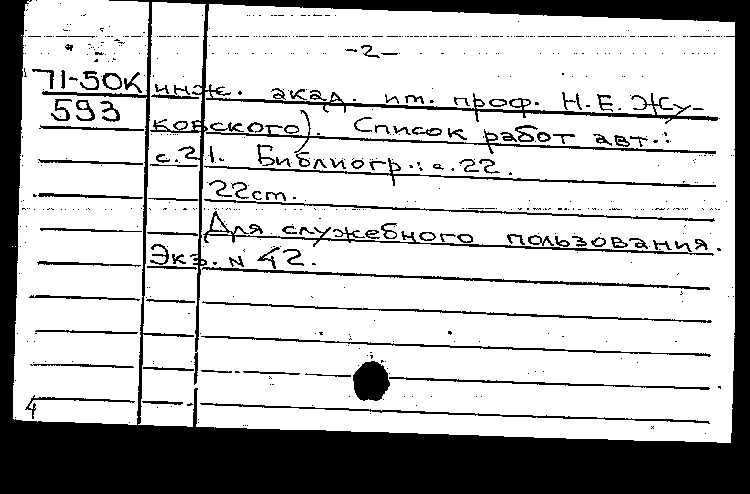 -2-
71-50К инж. акад. им. проф. Н.Е. Жу-
593 ковского). Список работ авт.:
с.21. Библиогр.: с.22.
22см.
Для служебного пользования.
Экз. N 42.
4